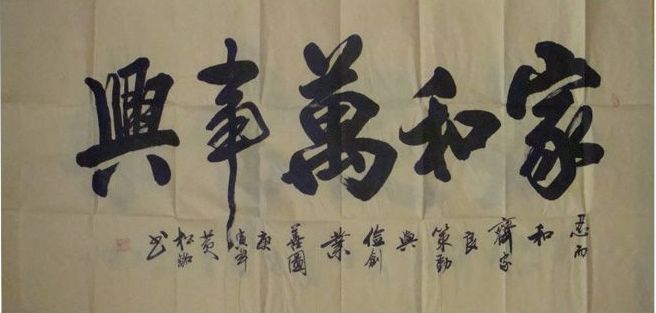 家和萬事興
忍而和齊家良策勤與儉創業善圖
庚寅年黃松
書